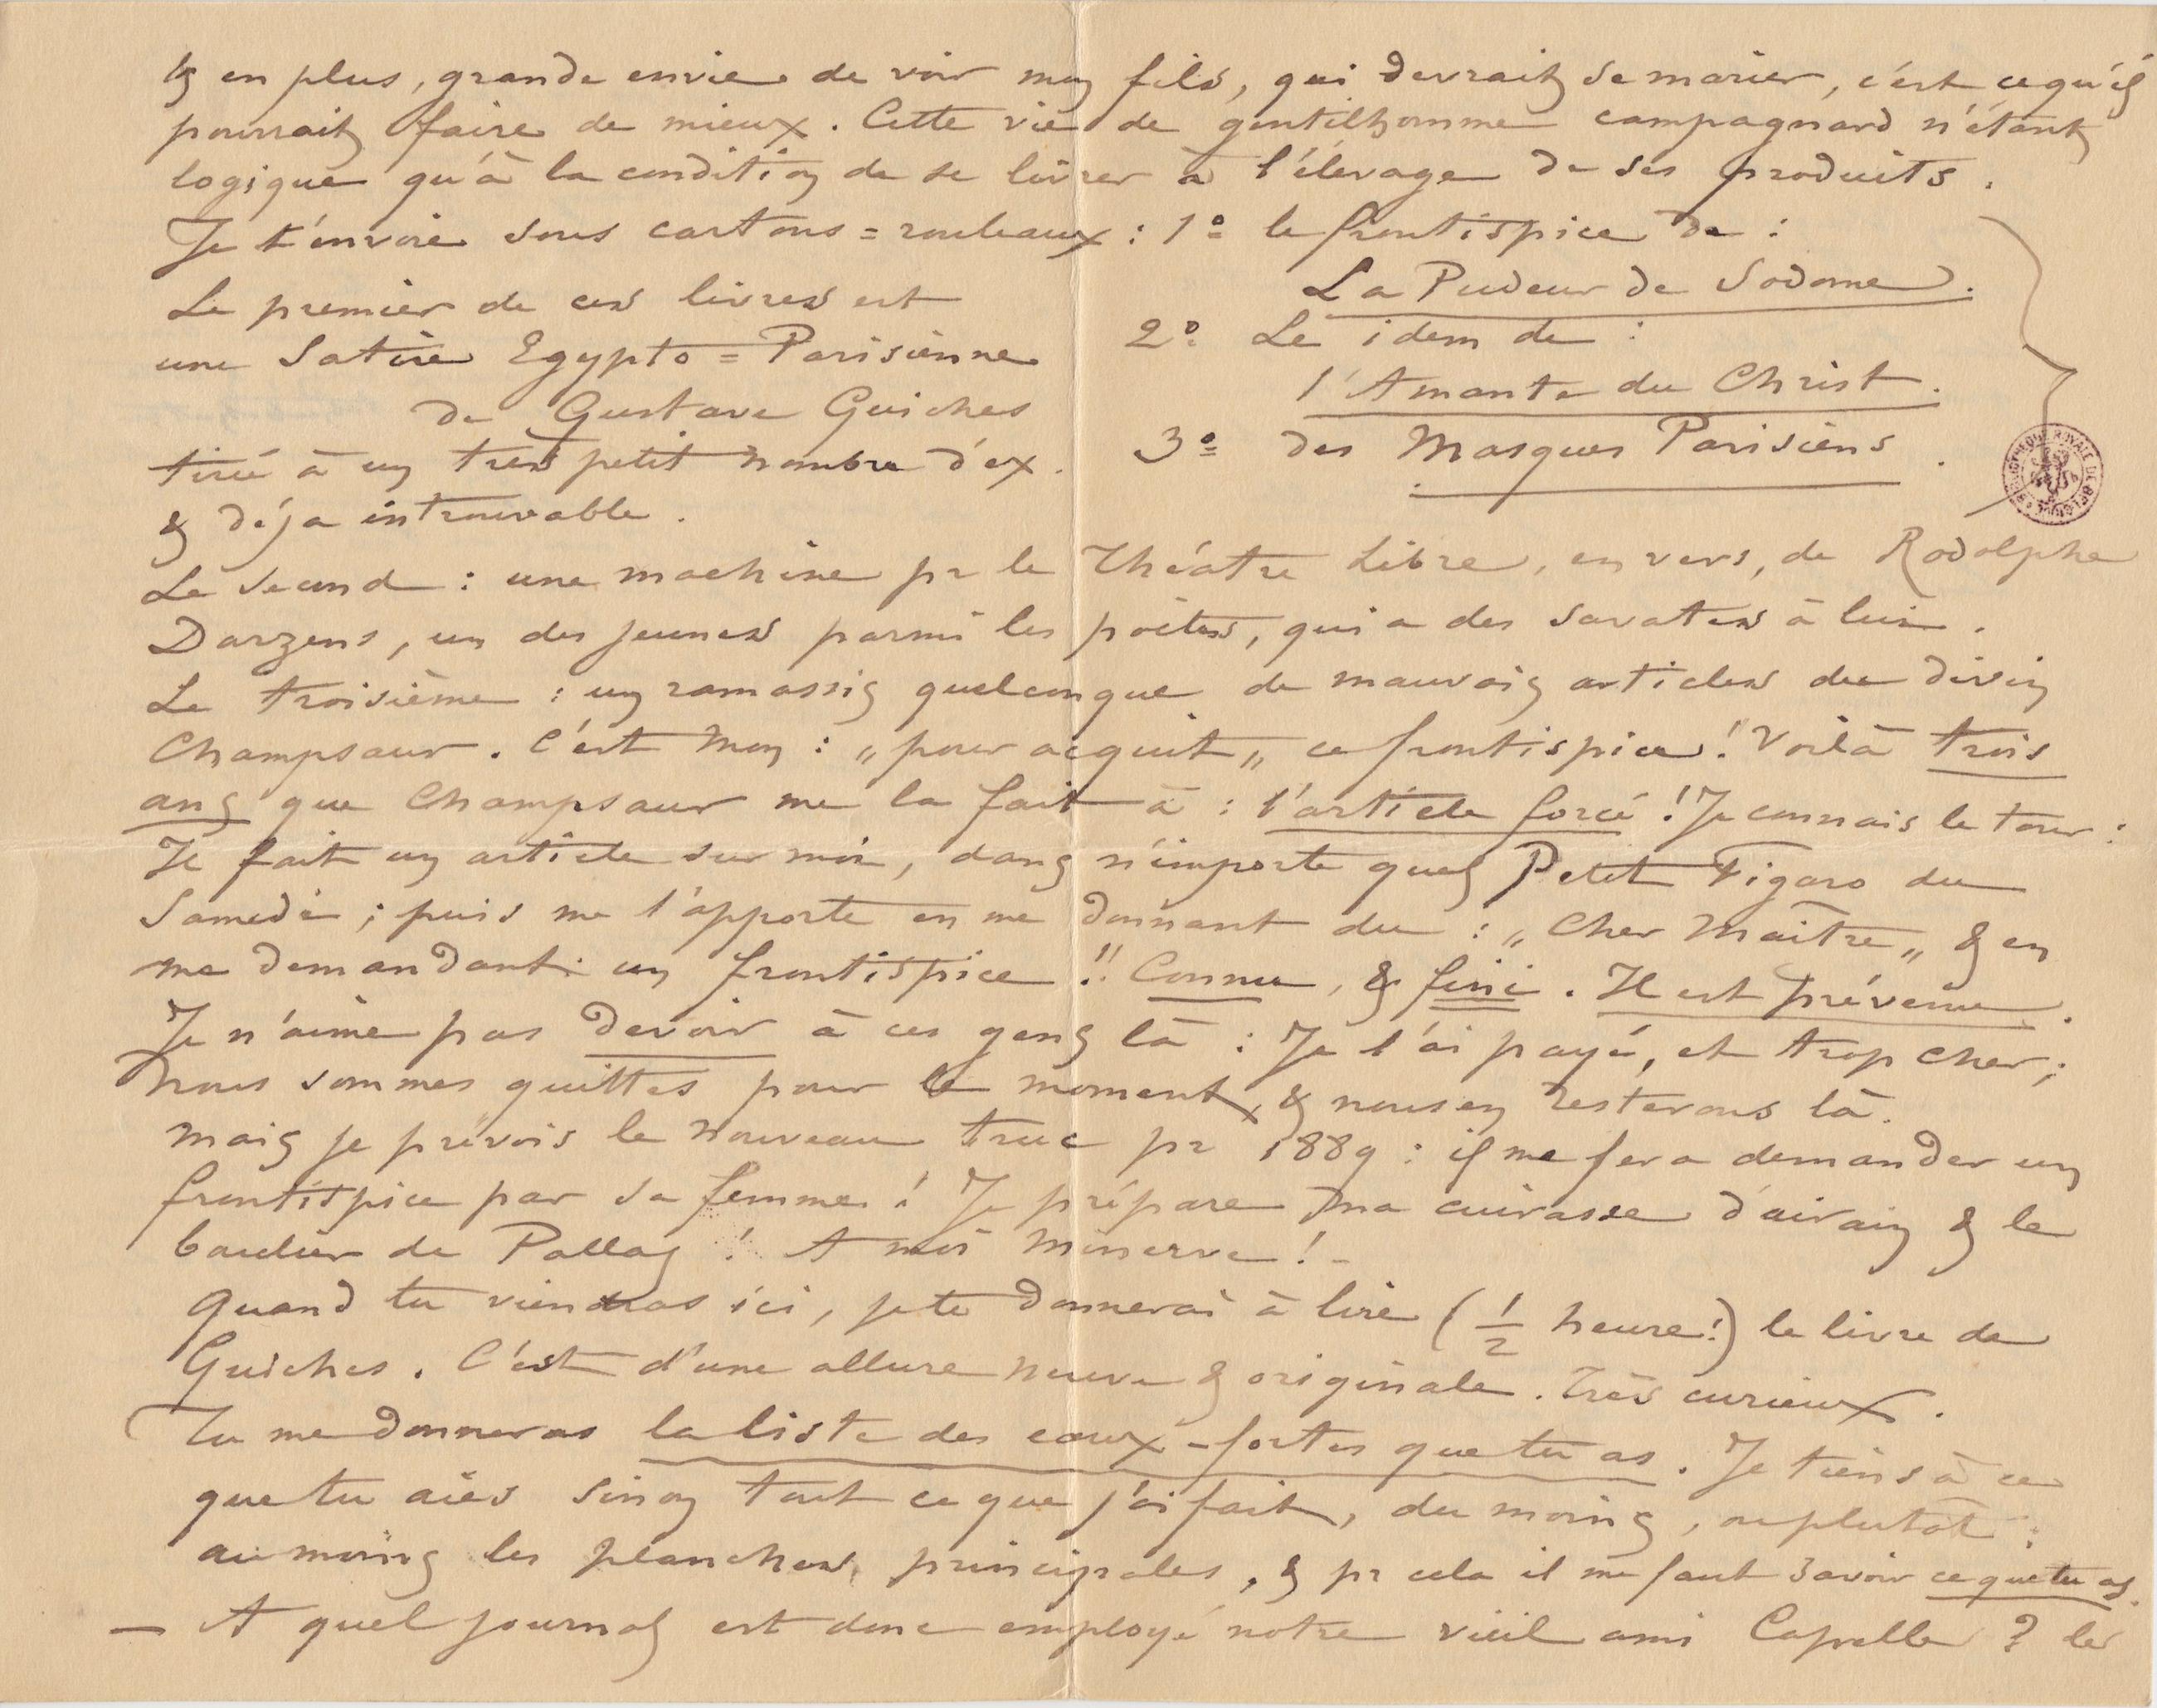 & en plus, grande envie de voir mon fils, qui devrait se marier, c'est ce qu'il
pourrait faire de mieux. Cette vie de gentilhomme campagnard n'étant
logique qu'à la condition de se livrer à l'élevage de ses produits.
Je t'envoie sous cartons = rouleaux : 1º le frontispice de :
La Pudeur de Sodome.
2º Le idem de :
l'Amante du Christ.
3º des Masques Parisiens.
Le premier de ces livres est
une Satire Egypto = Parisienne
de Gustave Guiches
tiré à un très petit nombre d'ex.
& déja introuvable.
BIBLIOTHEQUE ROYALE DE BELGIQUE
Le second : une machine pr le Théâtre Libre, en vers, de Rodolphe
Darzens, un des jeunes parmi les poètes, qui a des savates à lui.
Le troisième : un ramassis quelconque de mauvais articles du divin
Champsaur. C'est mon : „pour acquit„ ce frontispice ! Voilà trois
ans que Champsaur me la fait à : l'article forcé ! Je connais le tour :
Il fait un article sur moi, dans n'importe quel Petit Figaro du
Samedi ; puis me l'apporte en me donnant du : „Cher Maître„ & en
me demandant un frontispice !! Connu, & fini. Il est prévenu.
Je n'aime pas devoir à ces gens là : Je l'ai payé, et trop cher ;
nous sommes quittes pour le moment, & nous en resterons là.
mais je prévois le nouveau truc pr 1889 : il me fera demander un
frontispice par sa femme ! Je prépare ma cuirasse d'airain & le
bouclier de Pallas ! A moi Minerve ! -
Quand tu viendras ici, je te donnerai à lire (1/2 heure !) le livre de
Guiches. C'est d'une allure neuve & originale. Très curieux.
Tu me donneras la liste des eaux-fortes que tu as. Je tiens à ce
que tu aies sinon tout ce que j'ai fait, du moins, ou plutôt :
au moins les planches principales, & pr cela il me faut savoir ce que tu as.
— A quel journal est donc employé notre vieil ami Capelle ? les